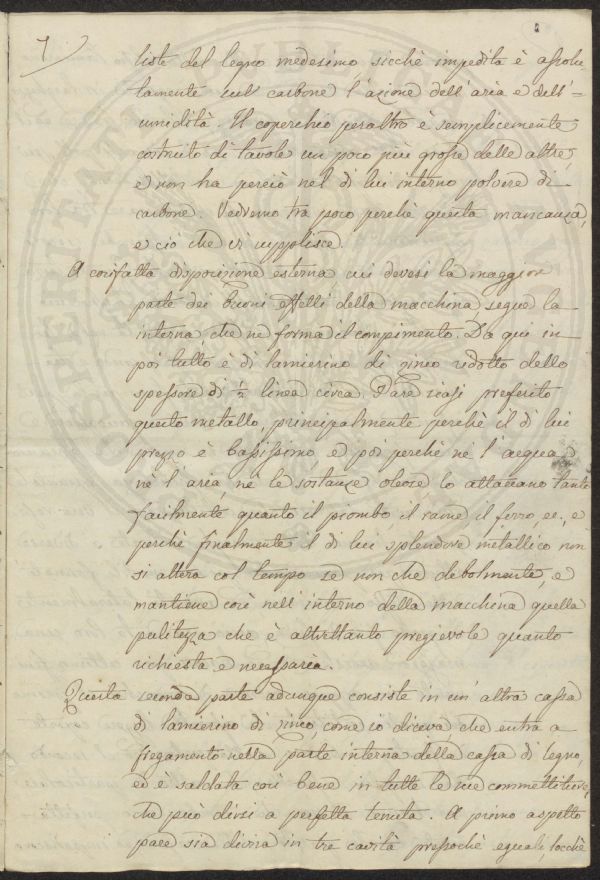 7
liste del legno medesimo, sicchè impedita è assolu-
tamente sul carbone l'azione dell'aria e dell'
umidità. Il coperchio peraltro è semplicemente
costruito di tavole un poco più grosse delle altre,
e non ha perciò nel di lui interno polvere di
carbone. Vedremo tra poco perchè questa mancanza,
e ciò che vi supplisce.
A cosifatta disposizione esterna, cui devesi la maggior
parte dei buoni effetti della macchina segue la
interna, che ne forma il compimento. Da qui in
poi tutto è di lamierino di zinco ridotto dello
spessore di ½ linea circa. Pare siasi preferito
questo metallo, principalmente perchè il di lui
prezzo è bassissimo, ed poi perchè nè l'acqua,
nè l'aria, nè le sostanze oleose, lo attaccano tanto
facilmente quanto il piombo il rame il ferro, ec., e
perchè finalmente il di lui splendore metallico non
si altera col tempo se non che debolmente, e
mantiene così nell'interno della macchina quella
pulitezza che è altrettanto pregievole quanto
richiesta e necessaria.
Questa seconda parte adunque consiste in un'altra cassa
di lamierino di zinco, come io diceva che entra a
fregamento nella parte interna della cassa di legno,
ed è saldata così bene in tutte le sue commettiture,
che può dirsi a perfetta tenuta. A primo aspetto
pare sia divisa in tre cavità pressochè eguali, locchè